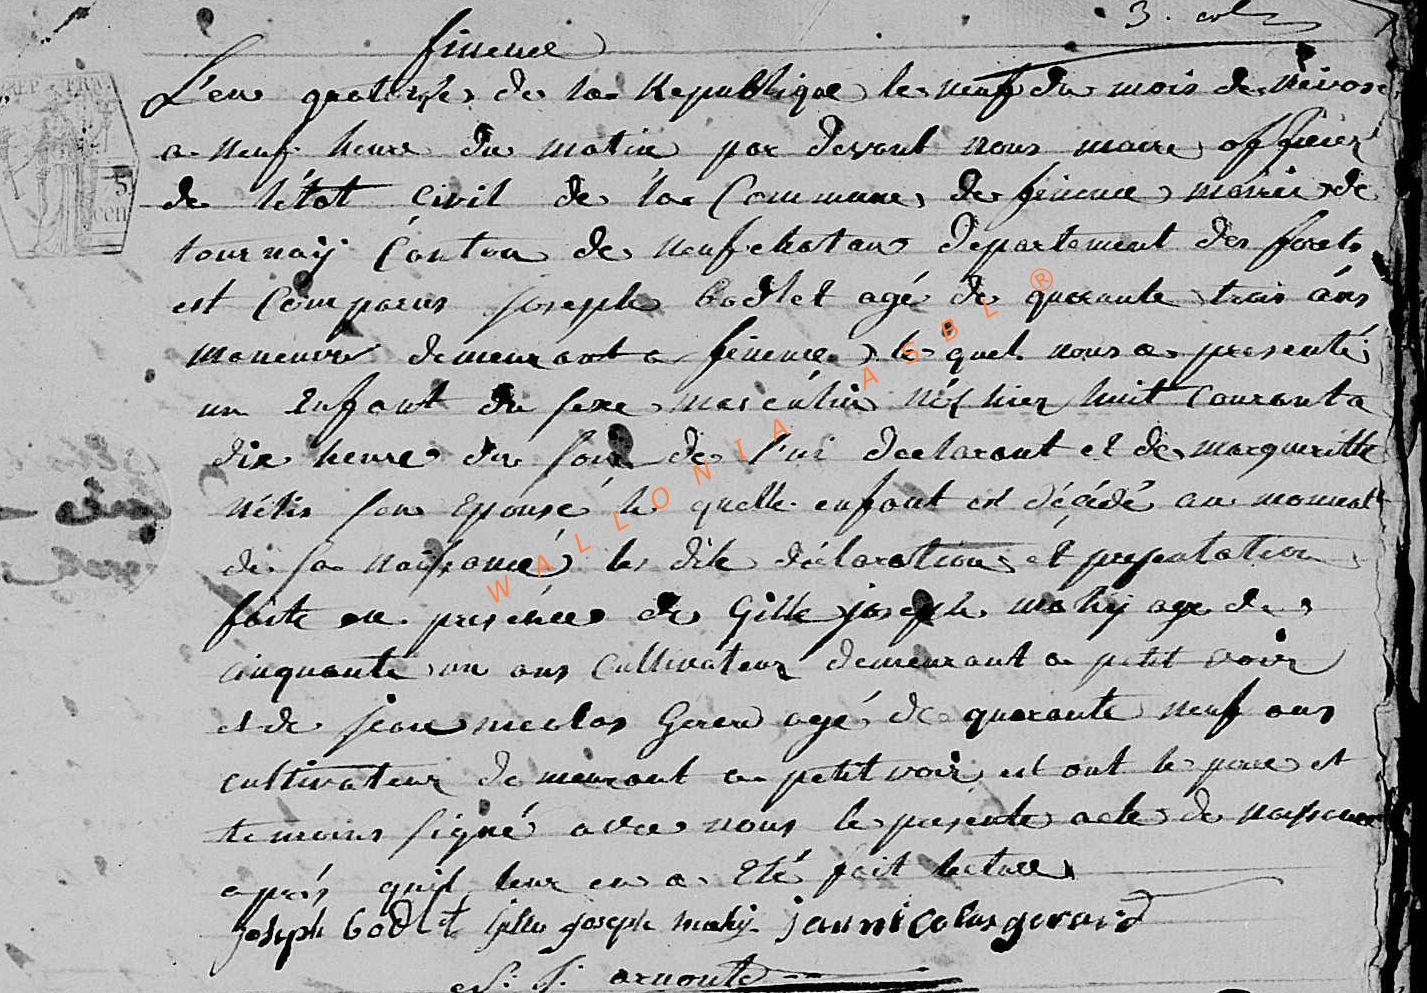 3.
finence
L'en quatorze de la Republique le neuf du mois de Nivose
a neuf heure du matin par devant nous maire officier
de létat Civil de la Commune de finence mairie de
tournaÿ Canton de neufchatau departement des forets
est Comparus joseph bodlet agé de quarante trois áns
maneuvre demeurant a finence le quel nous a presenté
un Enfant du sexe masculin né hier huit Courant a
dix heure du soir de lui declarant et de marguerithe
son Epousé le quelle enfant est décédé au moment
de sa naissance les dite déclaration et presentation
faite en presence de Gille joseph mahÿ age de
cinquante un ans Cultivateur demeurant a petit voir
et de jean nicolas Gerar agé de quarante neuf ans
cultivateur demeurant a petit voir et ont le pere et
temoins signé avec nous le presente acte de naissance
aprés quil leur en a Eté fait lecture
joseph bodlet gille joseph mahÿ jean nicolas gerard
arnould
REP. FRA.
5
cen
WALLONIA ASBL ®